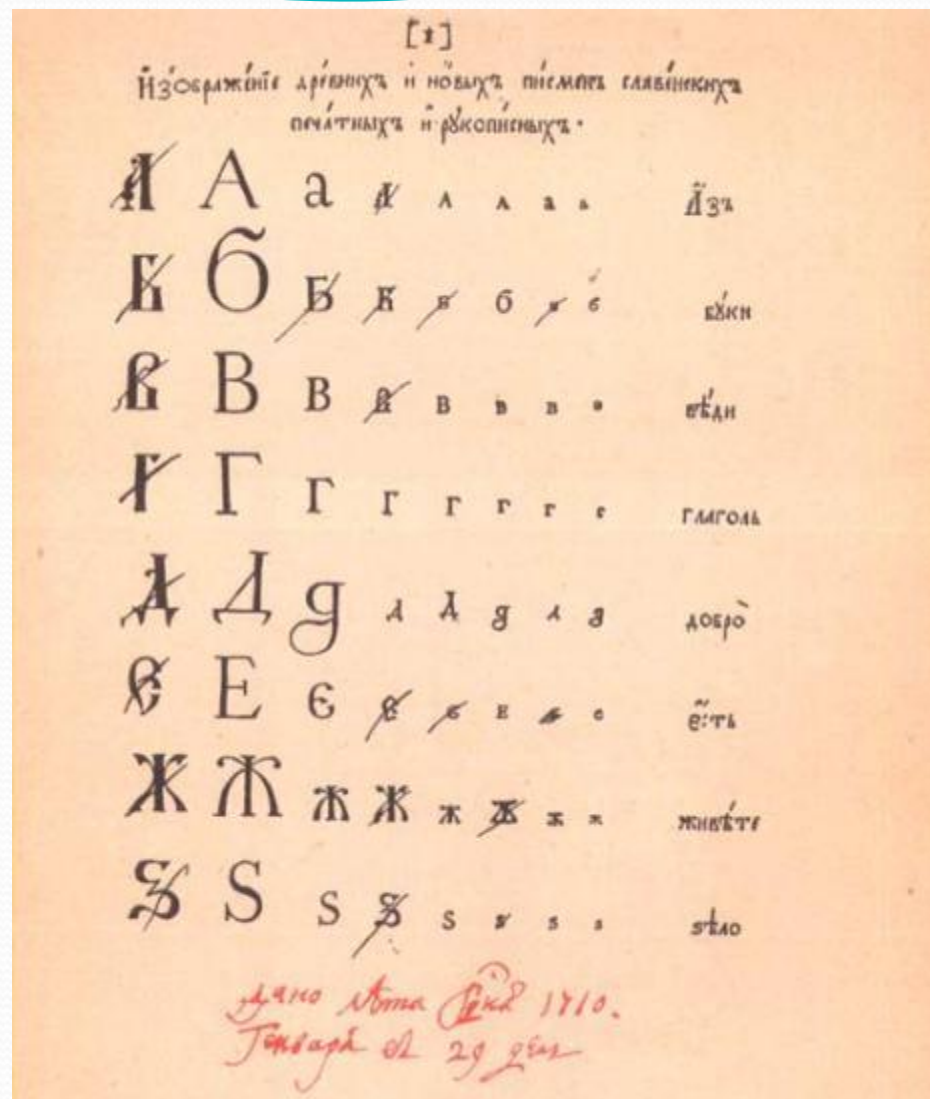 [1]
И҆зѡбраже́нїе дре́внихъ и҆ но́выхъ пи́сменъ славе́нскихъ
печа́тныхъ и҆ рꙋкопи́сныхъ.
А А а А а а а а А҆́зъ
Б Б Б Б Б б б б бꙋ́ки
В В в В в в в в вѣ́ди
Г Г г г г г г г глаголь
Д Д д д д д д д добро̀
Є Е є є є е е е є҆́сть
Ж Ж ж ж ж ж ж ж живѣ́те
Ѕ Ѕ ѕ ѕ ѕ ѕ ѕ ѕ ѕѣло
Дано лѣта 1710.
Генваря въ 29 день